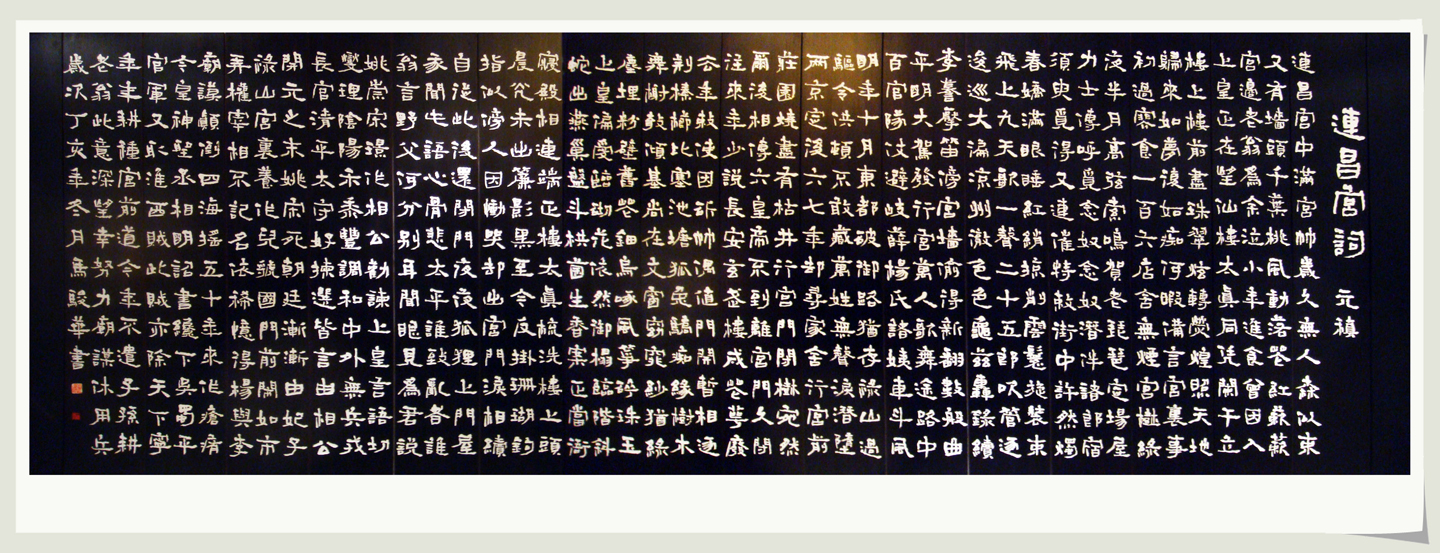 連昌宮詞 元稹
連昌宮中滿宮竹歲久無人森似束
又有墻頭千葉桃風動落花紅蔌蔌
宮邊老翁為余泣小年進食曾因入
上皇正在望仙樓太真同凭闌干立
樓上樓前盡珠翠炫轉熒煌照天地
歸來如夢復如痴何暇備言宮裏事
初過寒食一百六店舍無煙宮樹綠
夜半月高弦索鳴賀老琵琶定場屋
力士傳呼覓念奴念奴潛伴諸郎宿
須臾覓得又連催特敕街中許然燭
春嬌滿眼睡紅綃掠削雲鬟旋裝束
飛上九天歌一聲二十五郎吹管逐
逡巡大遍涼州徹色色龜茲轟錄續
李謩擪笛傍宮墻偷得新翻數般曲
平明大駕發行宮萬人歌舞途路中
百官隊仗避岐薛楊氏諸姨車斗風
明年十月東都破御路猶存祿山過
驅令供頓不敢藏萬姓無聲淚潛墮
兩京定後六七年却尋家舍行宮前
莊園燒盡有枯井行宮門閉樹宛然
爾後相傳六皇帝不到離宮門久閉
往來年少説長安玄武樓成花萼廢
去年敕使因斫竹偶值門開暫相逐
荊榛櫛比塞池塘狐兔驕痴緣樹木
舞榭欹傾基尚在文窗窈窕紗猶綠
塵埋粉壁舊花鈿烏啄風箏碎珠玉
上皇偏愛臨砌花依然御榻臨階斜
蛇出燕巢盤斗栱菌生香案正當衙
寢殿相連端正樓太真梳洗樓上頭
晨光未出簾影黑至今反掛珊瑚鉤
指似傍人因慟哭却出宮門淚相續
自從此後還閉門夜夜狐狸上門屋
我聞此語心骨悲太平誰致亂者誰
翁言野父何分別耳聞眼見為君説
姚崇宋璟作相公勸諫上皇言語切
燮理陰陽禾黍豐調和中外無兵戎
長官清平太守好揀選皆言由相公
開元之末姚宋死朝廷漸漸由妃子
祿山宮裏養作兒虢國門前鬧如市
弄權宰相不記名依稀憶得楊與李
廟謨顛倒四海搖五十年來作瘡痏
今皇神聖丞相明詔書纔下吳蜀平
官軍又取淮西賊此賊亦除天下寧
年年耕種宮前道今年不遣子孫耕
老翁此意深望幸努力廟謀休用兵
歲次丁亥年冬月馬駿華書